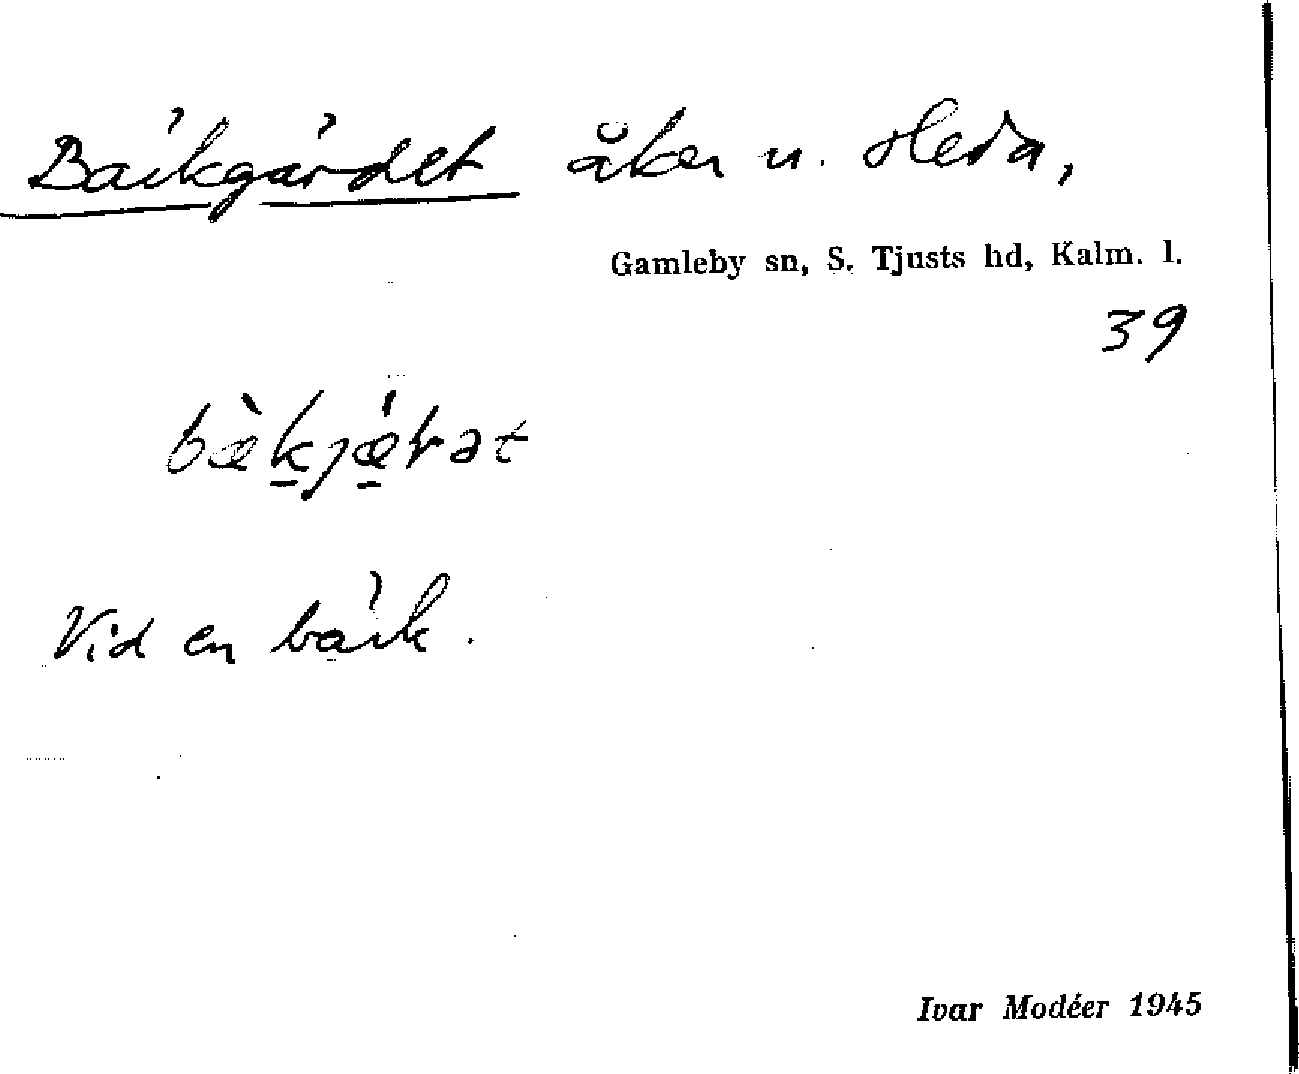 Bäckgärdet åker u. Heda,
Gamleby sn, S. Tjusts hd, Kalm. l.
39
Vid en bäck.
Ivar Modéer 1945